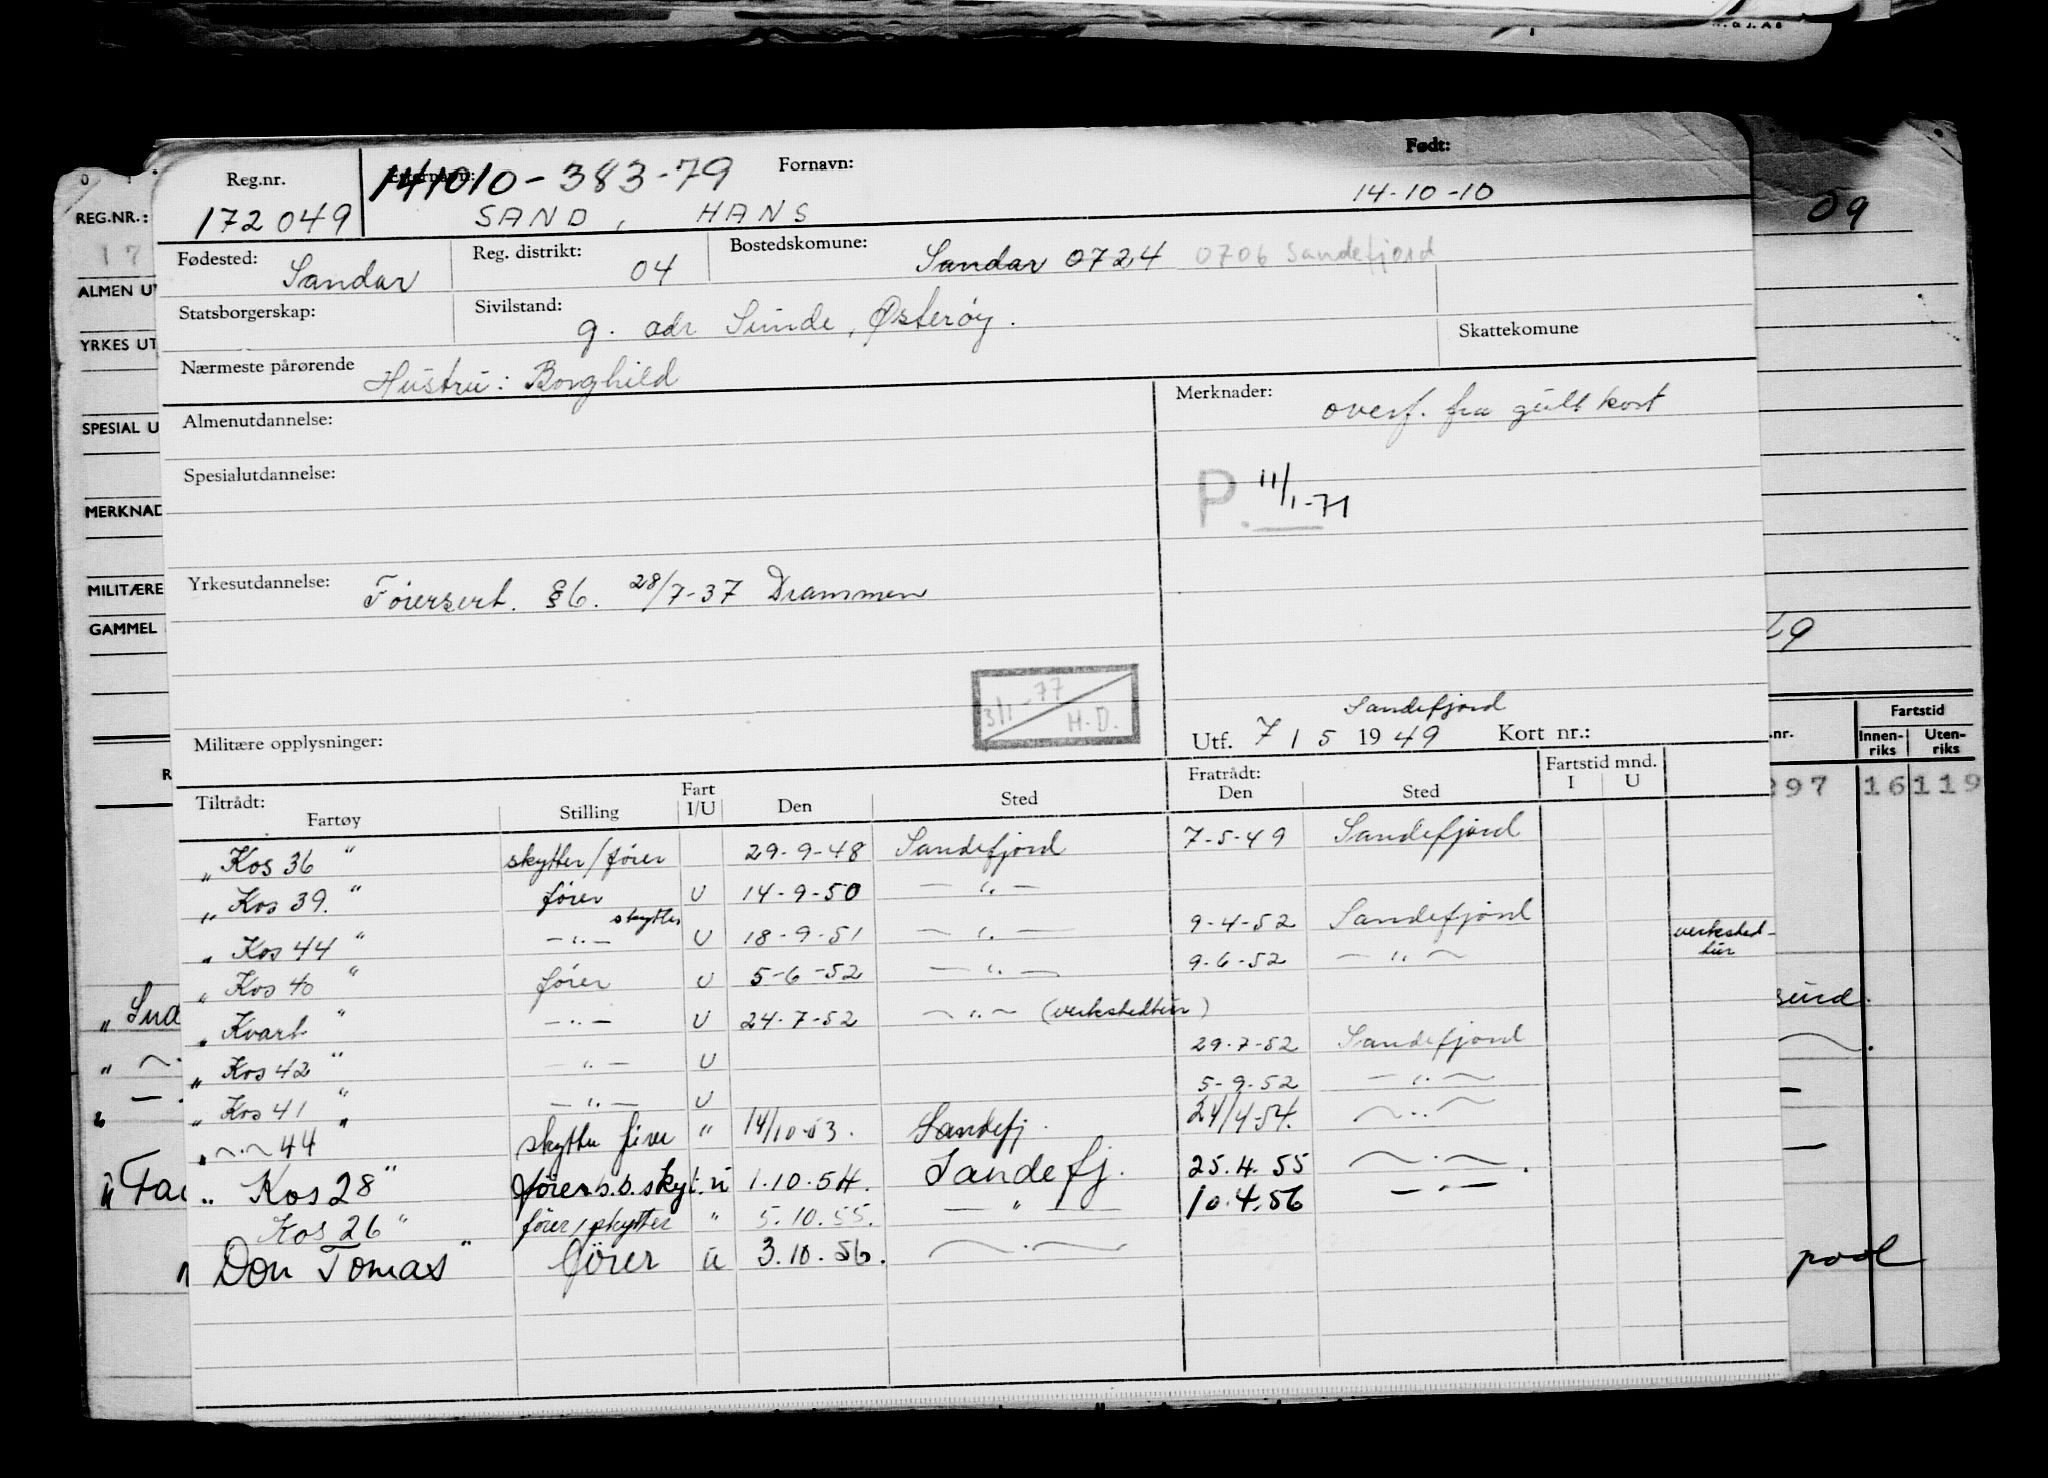 Reg.nr. 141010-383-79 Fornavn: Født:
172049 SAND, HANS 14-10-10
Fødested: Sandar Reg. distrikt: 04 Bostedskomune: Sandar 0724 0706 Sandefjord
Statsborgerskap: Sivilstand: g. adr Sunde, Østerøy. Skattekomune
Nærmeste pårørende Hustru: Borghild
Almenutdannelse: Merknader: overf. fra gult kort
Spesialutdannelse: P. 11/1-71
Yrkesutdannelse: Førersert. §6. 28/7-37 Drammen
3/1-77 H.D.
Sandefjord
Militære opplysninger: Utf. 7/5 1949 Kort nr.:
Tiltrådt: Fartøy Stilling Fart I/U Den Sted Fratrådt: Den Sted Fartstid mnd. I U
"Kos 36" skytter/fører 29-9-48 Sandefjord 7-5-49 Sandefjord
"Kos 39." fører U 14-9-50 — " —
"Kos 44" — " — skytter U 18-9-51 — " — 9-4-52 Sandefjord
"Kos 40" fører U 5-6-52 — " — 9-6-52 — " — verksted-tur
"Kvart" — " — U 24-7-52 — " — (verkstedtur)
"Kos 42" — " — U 29-7-52 Sandefjord
"Kos 41" — " — U 5-9-52 — " —
" — " — 44" skytter fører " 14/10-53. Sandefj. 24/4-54. — " —
"Kos 28" fører s.s. skyt. u 1.10.54. Sandefj. 25.4.55 — " —
Kos 26" fører/skytter " 5.10.55. — " — 10.4.56 — " —
"Don Tomas" fører u 3.10.56. — " —
REG.NR.:
17
09
ALMEN UT
YRKES UT
SPESIAL U
MERKNAD
MILITÆRE
GAMMEL
69
Fartstid
nr. Innen-riks Uten-riks
297 16 119
sund.
pool